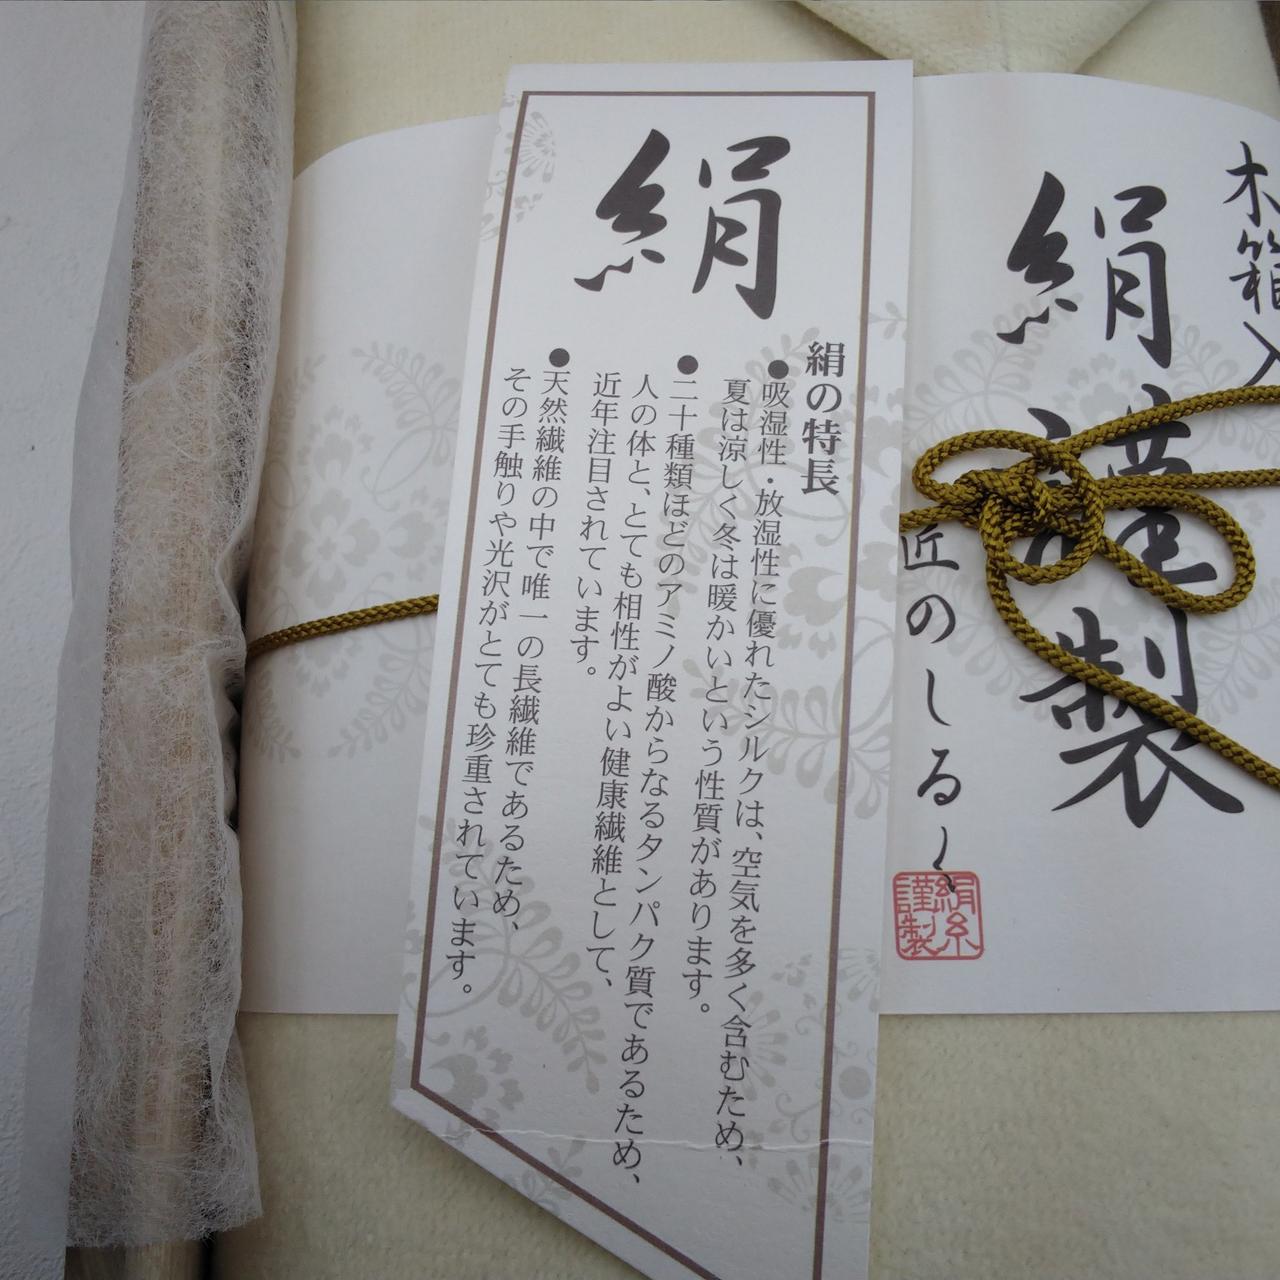 絹
絹の特長
●吸湿性・放湿性に優れたシルクは、空気を多く含むため、
夏は涼しく冬は暖かいという性質があります。
●二十種類ほどのアミノ酸からなるタンパク質であるため、
人の体と、とても相性がよい健康繊維として、
近年注目されています。
●天然繊維の中で唯一の長繊維であるため、
その手触りや光沢がとても珍重されています。
木箱入
絹謹製
匠のしるし
絹糸
謹製